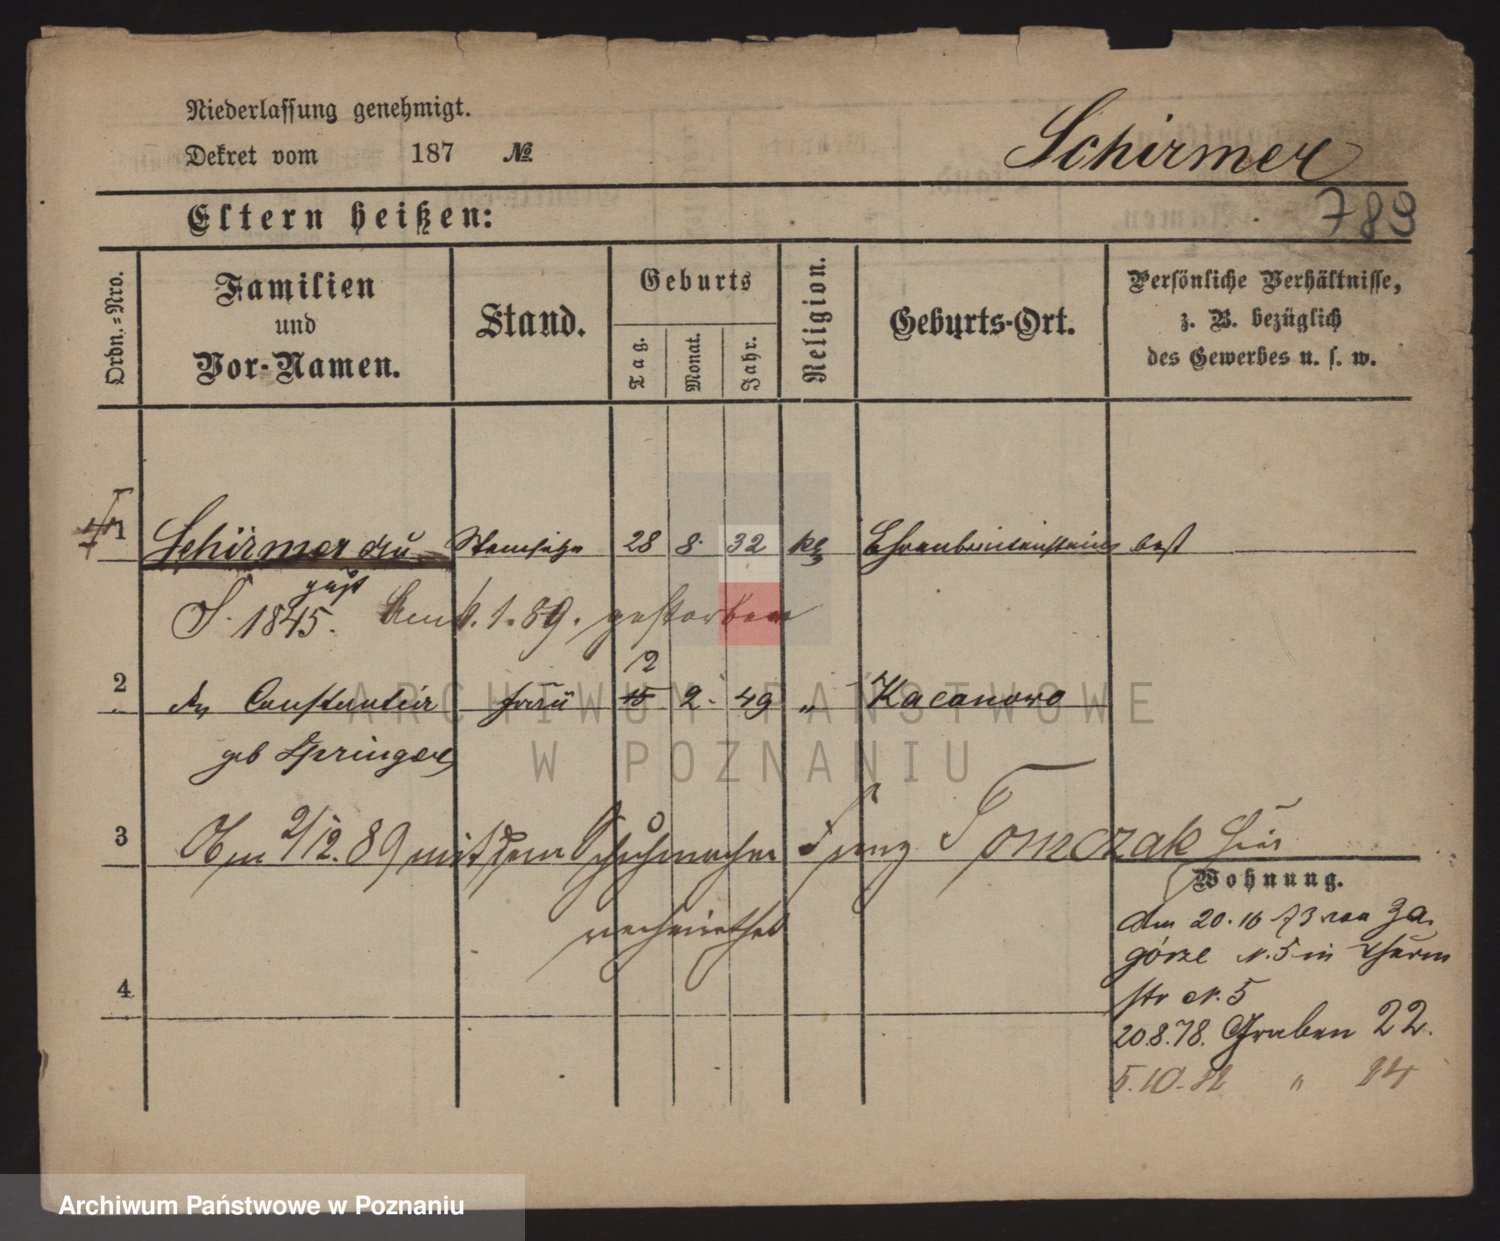 Niederlassung genehmigt.
Dekret vom 187 №
Schirmer
789
Eltern heißen:
Ordn.-Nro.
Familien
und
Vor-Namen.
Stand.
Geburts
Tag.
Monat.
Jahr.
Religion.
Geburts-Ort.
Persönliche Verhältnisse,
z. B. bezüglich
des Gewerbes u. s. w.
1 Schirmer Au 28 8 32 Ehrenbreitenstein
gust
1845. 1. 89. gestorben
2
2 Constantia Frau 15 2. 49 " Kacanowo
geb Springer
3 Am 2/12. 89 mit dem Schuhmacher Franz Tomczak hier
verheirathet
Wohnung.
Am 20. 10 73 von Za
górze N. 5 in Thurm
str N. 5
4
20.8.78. Graben 22.
5.10. " 24
ARCHIWUM PAŃSTWOWE
W POZNANIU
Archiwum Państwowe w Poznaniu